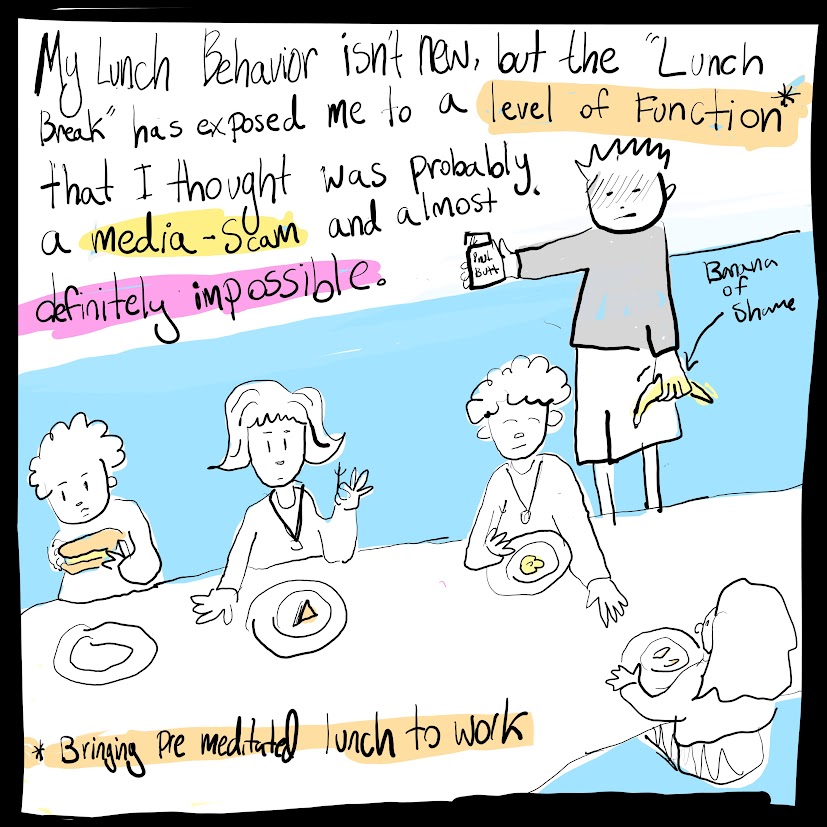 My Lunch Behavior isn't new, but the "Lunch
Break" has exposed me to a level of Function*
that I thought was probably
a media-Scam and almost
definitely impossible.
Pnut
Butt
Banana
of
Shame
* Bringing Pre meditated lunch to work